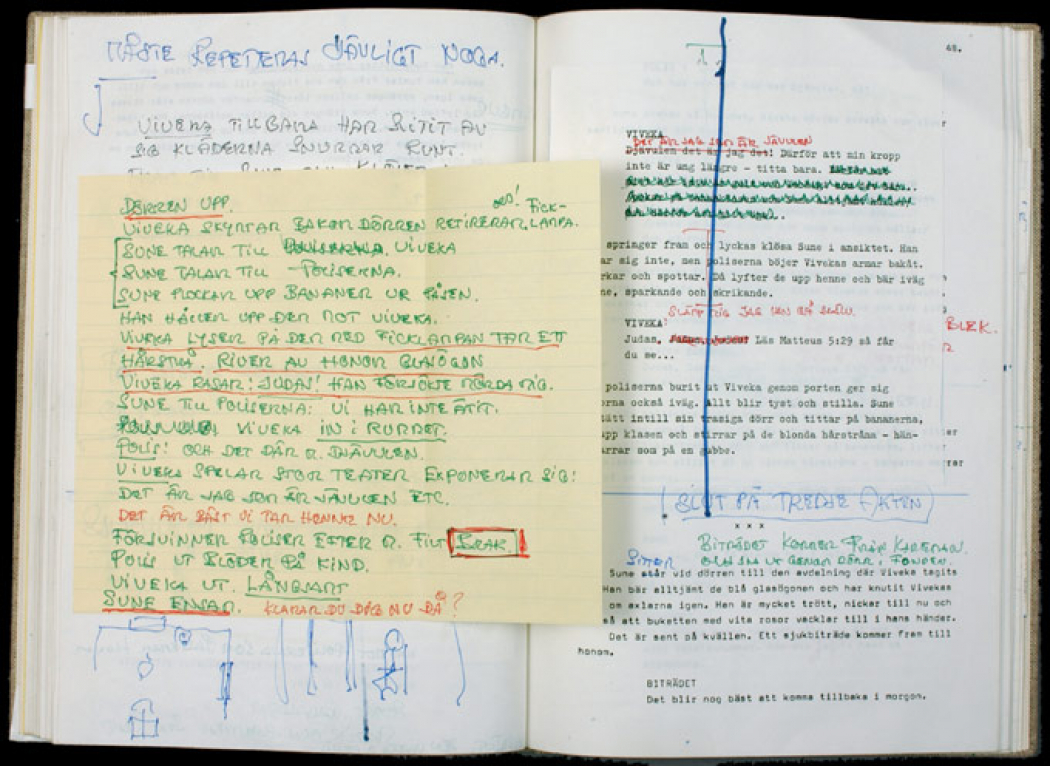 MÅSTE REPETERAS DJÄVLIGT NOGA.
VIVEKA TILLBAKA HAR SLITIT AV
SIG KLÄDERNA SNURRAR RUNT.
DÖRREN UPP.
OBS! FICK-
VIVEKA SKYMTAR BAKOM DÖRREN RETIRERAR. LAMPA.
SUNE TALAR TILL VIVEKA
SUNE TALAR TILL POLISERNA.
SUNE PLOCKAR UPP BANANER UR PÅSEN.
HAN HÅLLER UPP DEM MOT VIVEKA.
VIVEKA LYSER PÅ DEM MED FICKLAMPAN TAR ETT
HÅRSTRÅ. RIVER AV HONOM GLASÖGON
VIVEKA RASAR! JUDAS! HAN FÖRSÖKTE MÖRDA MIG.
SUNE TILL POLISERNA: VI HAR INTE ÄTIT.
VIVEKA IN I RUMMET.
POLIS: OCH DET DÄR Ä. DJÄVULEN.
VIVEKA SPELAR STOR TEATER EXPONERAR SIG:
DET ÄR JAG SOM ÄR DJÄVULEN ETC.
DET ÄR BÄST VI TAR HENNE NU.
FÖRSVINNER POLISER EFTER M. FILT BRAK.
POLIS UT BLÖDER PÅ KIND.
VIVEKA UT. LÅNGSAMT
SUNE ENSAM. KLARAR DU DIG NU DÅ?
48.
VIVEKA
DET ÄR JAG SOM ÄR DJÄVULEN
Djävulen det är jag det! Därför att min kropp
inte är ung längre - titta bara.
springer fram och lyckas klösa Sune i ansiktet. Han
ar sig inte, men poliserna böjer Vivekas armar bakåt.
rkar och spottar. Då lyfter de upp henne och bär iväg
ne, sparkande och skrikande.
SLÄPP MIG JAG KAN GÅ SJÄLV.
VIVEKA
BLEK.
Judan, Läs Matteus 5:29 så får
du se...
poliserna burit ut Viveka genom porten ger sig
rna också iväg. Allt blir tyst och stilla. Sune
ått intill sin trasiga dörr och tittar på bananerna,
pp klasen och stirrar på de blonda hårstråna - hän-
rrar som på en gubbe.
SLUT PÅ TREDJE AKTEN
x x x
BITRÄDET KOMMER FRÅN KAREMAN.
SITTER OCH SKA UT GENOM DÖRR I FONDEN.
Sune står vid dörren till den avdelning där Viveke tagits
Han bär alltjämt de blå glasögonen och har knutit Vivekas
om axlarna igen. Han är mycket trött, nickar till nu och
så att buketten med vita rosor vacklar till i hans händer.
Det är sent på kvällen. Ett sjukbiträde kommer fram till
honom.
BITRÄDET
Det blir nog bäst att komma tillbaka i morgon.